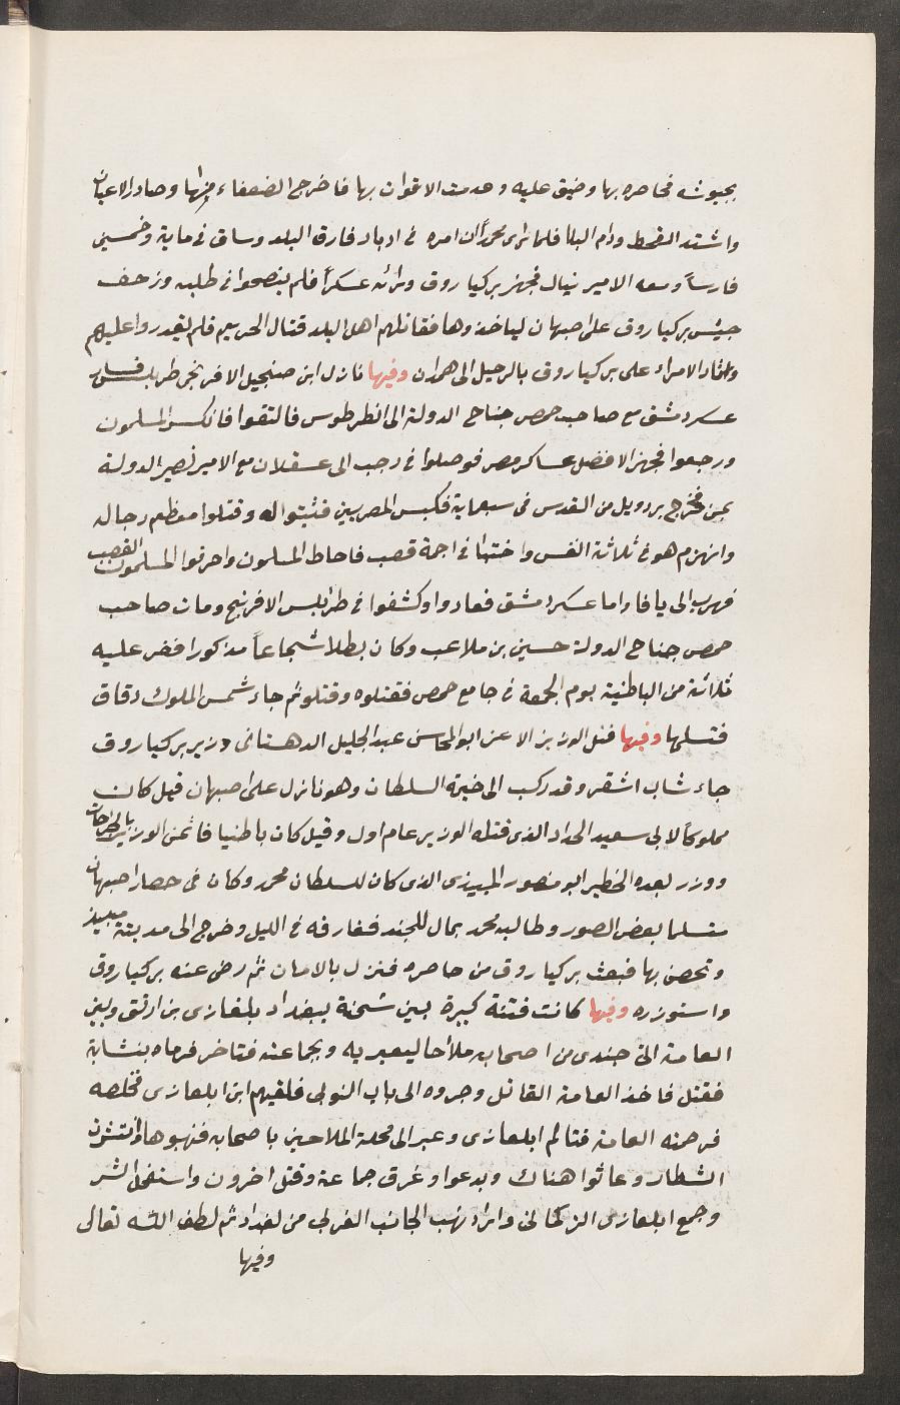 بجيوشه فحاصره بها وضيق عليه وعدمت الاقوات بها فاخرج الضعفاء منها وصادر الاعيان
واشتد القحط ودام البلا فلما راى محمد ان امره في ادبار فارق البلد وساق في ماية وخمسين
فارساً ومعه الامير نيال فجهز بركياروق ورائه عسكراً فلم ينصحوا في طلبه وزحف
جيش بركياروق على اصبهان لياخذوها فقاتلهم اهل البلد قتال الحريم فلم يقدروا عليهم
واشار الامراء على بركياروق بالرحيل الى همدان وفيها نازل ابن صنجيل الافرنجي طرابلس فسار
عسكر دمشق مع صاحب حمص جناح الدولة الى انطرطوس فالتقوا فانكسر المسلمون
ورجعوا فجهز الافضل عساكر مصر فوصلوا في رجب الى عسقلان مع الامير نصير الدولة
يمن فخرج بردويل من القدس في سبعماية فكبس المصريين فثبتوا له وقتلوا معظم رجاله
وانهزم هو في ثلاثة انفس واختبا في اجمة قصب فاحاط المسلمون واحرقوا المسلمون القصب
فهرب الى يافا واما عسكر دمشق فعادوا وكشفوا في طرابلس الافرنج ومات صاحب
حمص جناح الدولة حسين بن ملاعب وكان بطلا شجاعاً مذكورا قفز عليه
ثلاثة من الباطنية يوم الجمعة في جامع حمص فقتلوه وقتلو ثم جاء شمس الملوك دقاق
فتسلمها وفيها قتل الوزير الاعز ابو المحاسن عبد الجليل الدهستاني وزير بركياروق
جاء شاب اشقر وقد ركب الى خيمة السلطان وهو نازل على اصبهان قيل كان
مملوكاً لابي سعيد الحداد الذي قتله الوزير عام اول وقيل كان باطنيا فاثخن الوزير بالجراحات
ووزر بعده الخطير ابو منصور الميبذي الذي كان للسلطان محمد وكان في حصار اصبهان
متسلما بعض الصور وطالبه محمد بمال للجند ففارقه في الليل وخرج الى مدينة ميبذ
وتحصن بها فبعث بركياروق من حاصره فنزل بالامان ثم رضى عنه بركياروق
واستوزره وفيها كانت فتنة كبيرة بين شحنة ببغداد بلغازى بن ارتق وبين
العامة اتى جندى من اصحابه ملاحا ليعبر به وبجماعته فتاخر فرماه بنشابة
فقتل فاخذ العامة القاتل وجروه الى باب النوبى فلقيهم ابن ايلغازى فخلصه
فرجمته العامة فتالم ايلغازى وعبر الى محلة الملاحين باصحابه فنهبوها وانتشرت
الشطار وعاثوا هناك وبدعوا وغرق جماعة وقتل اخرون واستفحل الشر
وجمع ايلغازى التركمانى واراد نهب الجانب الغربي من بغداد ثم لطف الله تعالى
وفيها